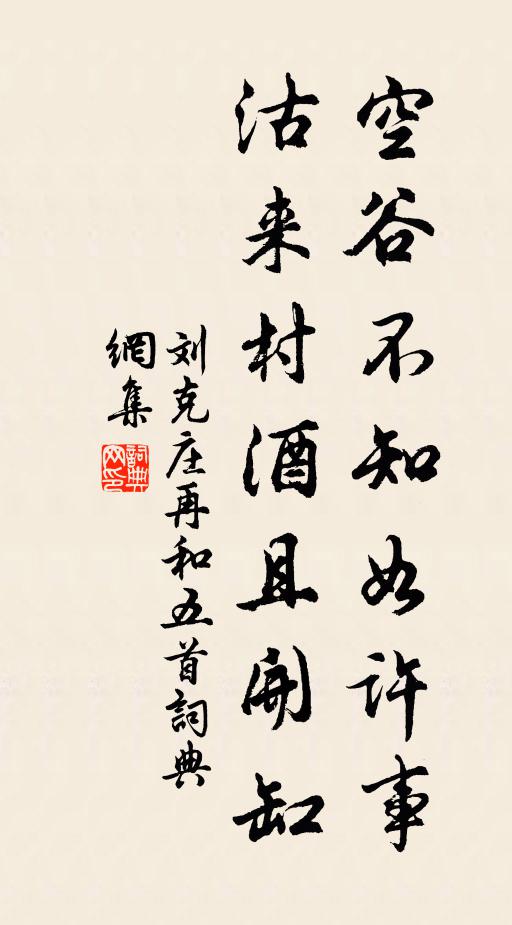 空谷不知如许事
沽来村酒且開缸
刘克庄再和五首詞典
網集
詞典网印